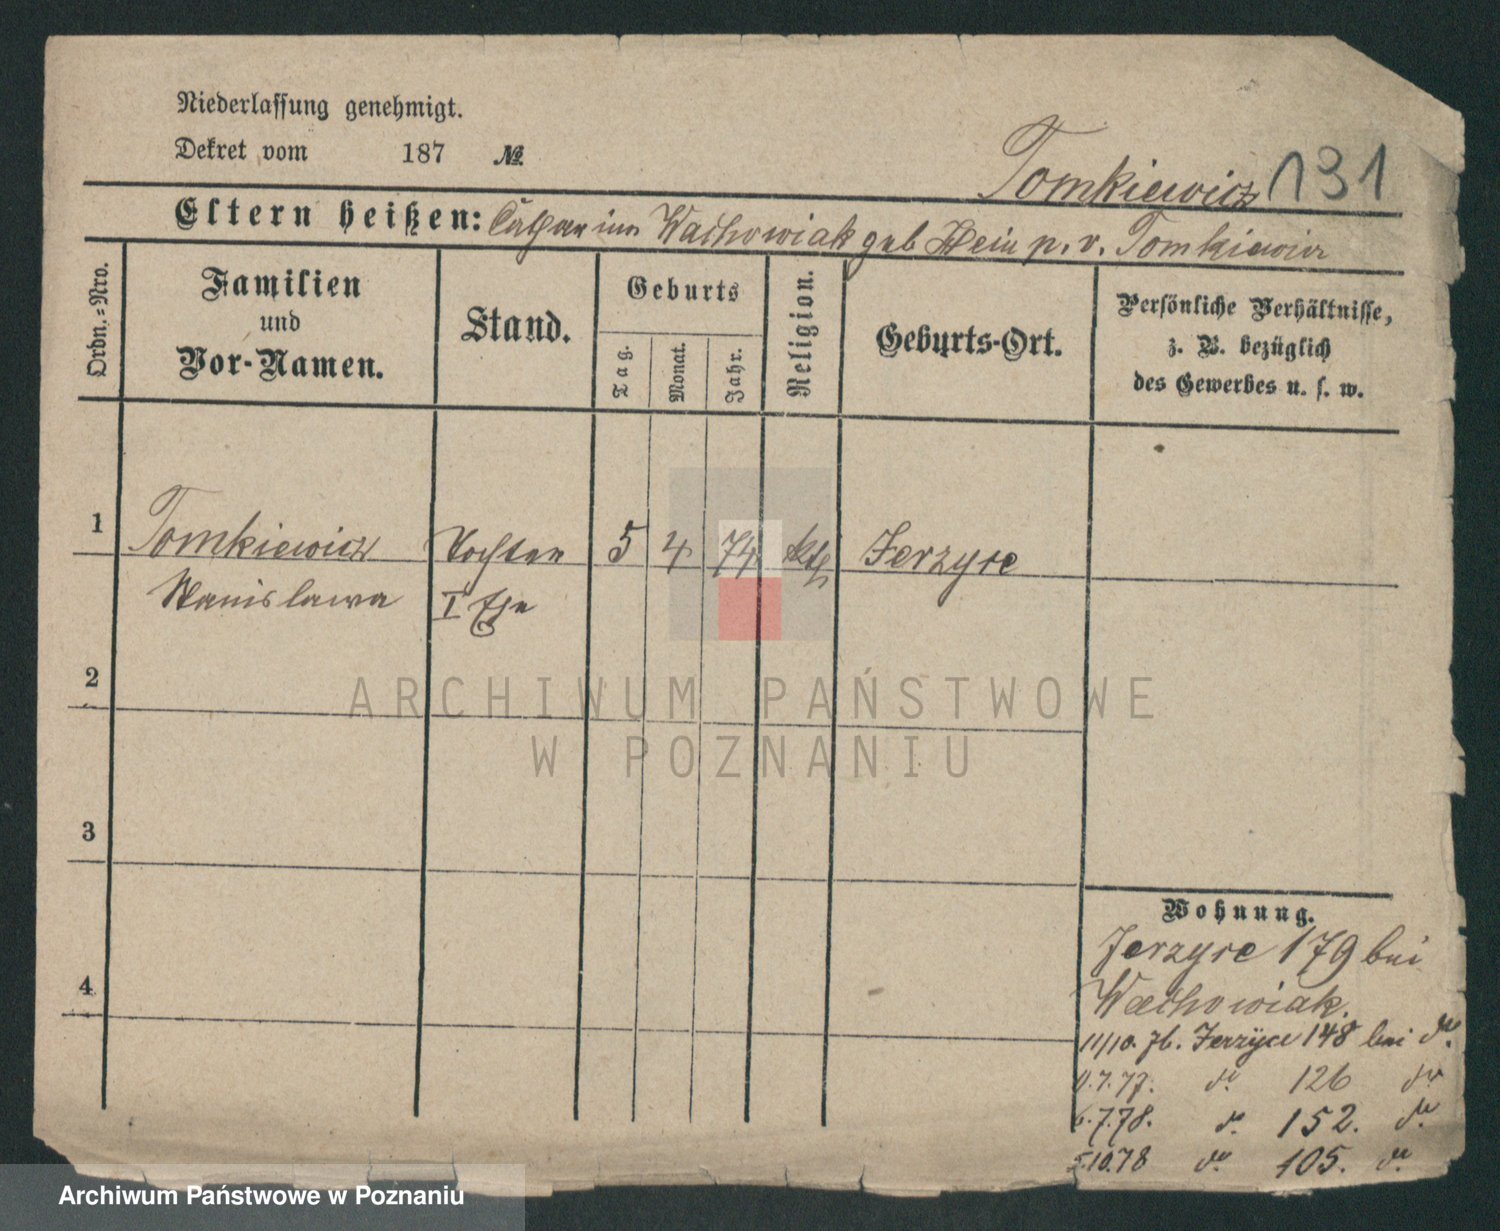 Niederlassung genehmigt.
Dekret vom 187 №
Tomkiewicz 131
Eltern heißen: Catharina Wachowiak geb Hein p. v. Tomkiewicz
Ordn.=Nro.
Familien
und
Vor-Namen.
Stand.
Geburts
Tag.
Monat.
Jahr.
Religion.
Geburts-Ort.
Persönliche Verhältnisse,
z. B. bezüglich
des Gewerbes u. s. w.
1 Tomkiewicz Tochter 5 4 74 kth Jerzyce
Stanislawa I Ehe
2
ARCHIWUM PAŃSTWOWE
W POZNANIU
3
4
Wohnung.
Jerzyce 179 bei
Wachowiak.
11/10. 76. Jerzyce 148 bei do.
9.7.77. do 126 do
6.7.78. do. 152. do.
5.10.78 do. 105. do.
Archiwum Państwowe w Poznaniu